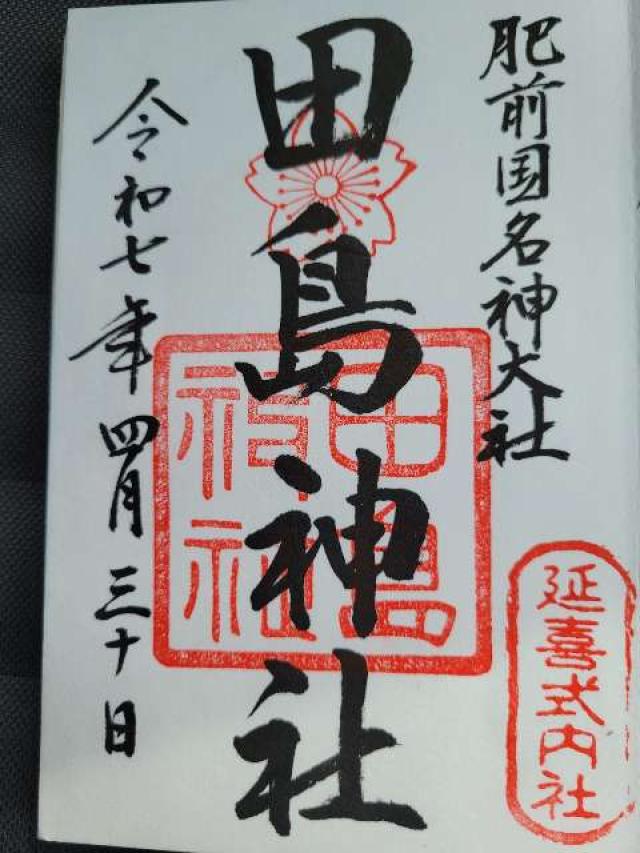 肥前国名神大社
延喜式内社
田島神社
田島神社
令和七年四月三十日